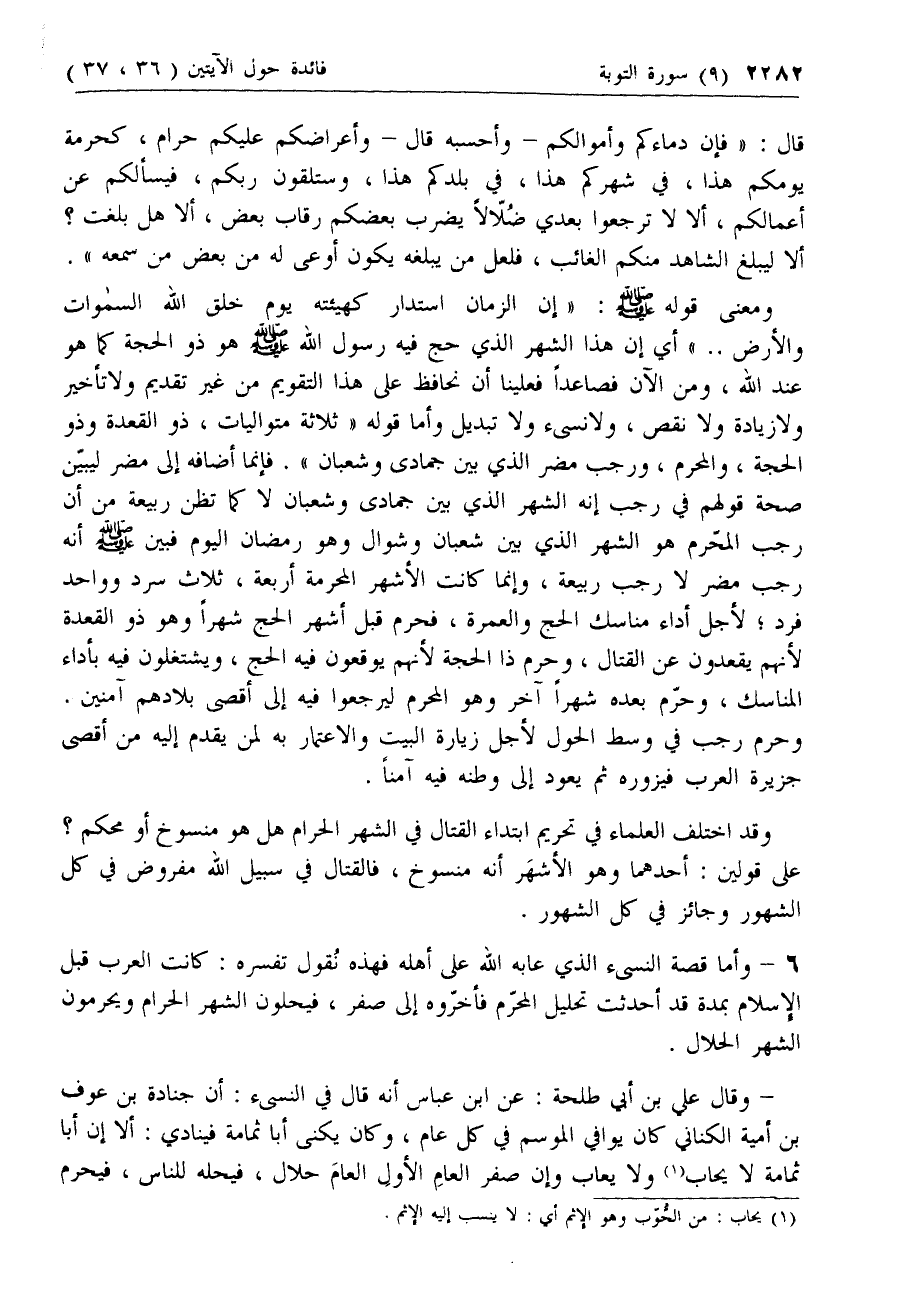 ٢٢٨٢ (٩) سورة التوبة فائدة حول الآيتين ( ٣٦ ، ٣٧ )
قال : « فإن دماءكم وأموالكم – وأحسبه قال – وأعراضكم عليكم حرام ، كحرمة
يومكم هذا ، في شهركم هذا ، في بلدكم هذا ، وستلقون ربكم ، فيسألكم عن
أعمالكم ، ألا لا ترجعوا بعدي ضُلّالاً يضرب بعضكم رقاب بعض ، ألا هل بلغت ؟
ألا ليبلغ الشاهد منكم الغائب ، فلعل من يبلغه يكون أوعى له من بعض من سمعه » .
ومعنى قوله ﷺ : « إن الزمان استدار كهيئته يوم خلق الله السمٰوات
والأرض .. » أي إن هذا الشهر الذي حج فيه رسول الله ﷺ هو ذو الحجة كما هو
عند الله ، ومن الآن فصاعداً فعلينا أن نحافظ على هذا التقويم من غير تقديم ولاتأخير
ولازيادة ولا نقص ، ولانسىء ولا تبديل وأما قوله « ثلاثة متواليات ، ذو القعدة وذو
الحجة ، والمحرم ، ورجب مضر الذي بين جمادى وشعبان » . فإنما أضافه إلى مضر ليبيّن
صحة قولهم في رجب إنه الشهر الذي بين جمادى وشعبان لا كما تظن ربيعة من أن
رجب المحّرم هو الشهر الذي بين شعبان وشوال وهو رمضان اليوم فبين ﷺ أنه
رجب مضر لا رجب ربيعة ، وإنما كانت الأشهر المحرمة أربعة ، ثلاث سرد وواحد
فرد ؛ لأجل أداء مناسك الحج والعمرة ، فحرم قبل أشهر الحج شهراً وهو ذو القعدة
لأنهم يقعدون عن القتال ، وحرم ذا الحجة لأنهم يوقعون فيه الحج ، ويشتغلون فيه بأداء
المناسك ، وحرّم بعده شهراً آخر وهو المحرم ليرجعوا فيه إلى أقصى بلادهم آمنين .
وحرم رجب في وسط الحول لأجل زيارة البيت والاعتمار به لمن يقدم إليه من أقصى
جزيرة العرب فيزوره ثم يعود إلى وطنه فيه آمناً .
وقد اختلف العلماء في تحريم ابتداء القتال في الشهر الحرام هل هو منسوخ أو محكم ؟
على قولين : أحدهما وهو الأشهَر أنه منسوخ ، فالقتال في سبيل الله مفروض في كل
الشهور وجائز في كل الشهور .
٦ – وأما قصة النسىء الذي عابه الله على أهله فهذه نُقول تفسره : كانت العرب قبل
الإسلام بمدة قد أحدثت تحليل المحرّم فأخرّوه إلى صفر ، فيحلون الشهر الحرام ويحرمون
الشهر الحلال .
– وقال علي بن أبي طلحة : عن ابن عباس أنه قال في النسىء : أن جنادة بن عوف
بن أمية الكناني كان يوافي الموسم في كل عام ، وكان يكنى أبا ثمامة فينادي : ألا إن أبا
ثمامة لا يحاب(١) ولا يعاب وإن صفر العامِ الأولِ العامَ حلال ، فيحله للناس ، فيحرم
(١) يحاب : من الحُوّب وهو الإثم أي : لا ينسب إليه الإثم .